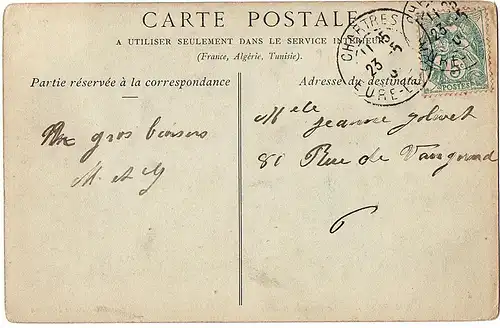 CARTE POSTALE
A UTILISER SEULEMENT DANS LE SERVICE INTERIEUR
(France, Algérie, Tunisie).
Partie réservée à la correspondance
Adresse du destinataire
CHARTRES
11 15
23 5
EURE-
POSTES
gros baisers
M. et G
Melle Jeanne Jolivet
81 Rue de Vaugirard
6